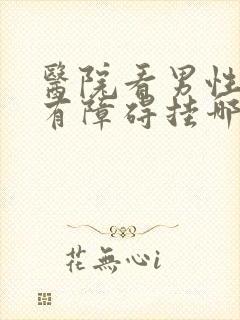 醫院看男性
有障碍挂哪
花無心i